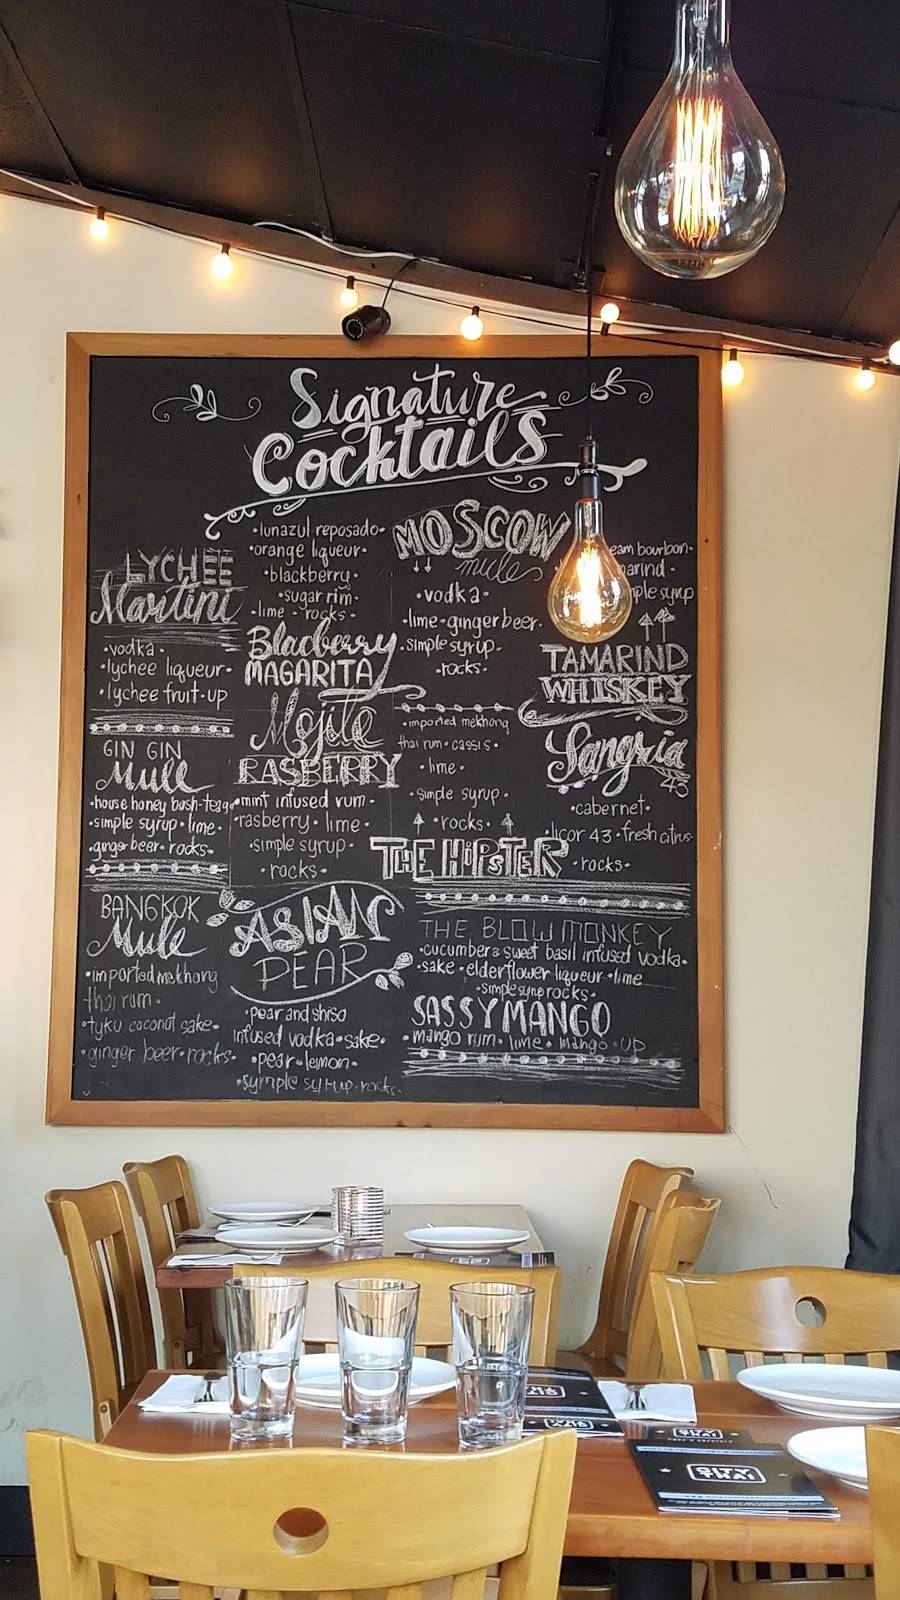 Signature
Cocktails
LYCHEE
Martini
•vodka•
•lychee liqueur•
•lychee fruit•up
GIN GIN
Mule
•house honey bush-tea
•simple syrup•lime•
•ginger beer•rocks•
BANGKOK
Mule
•imported mekhong
thai rum•
•tyku coconut sake•
•ginger beer•rocks•
•lunazul reposado•
•orange liqueur•
•blackberry•
•sugar rim•
•lime•rocks•
Blacberry
MAGARITA
Mojito
RASBERRY
•mint infused rum•
•rasberry•lime•
•simple syrup•
•rocks•
ASIAN
PEAR
•pear and shiso
infused vodka•sake•
•pear•lemon•
•symple syrup•rocks•
MOSCOW
mule
•vodka•
•lime•ginger beer•
•simple syrup•
•rocks•
•imported mekhong
thai rum•cassis•
•lime•
simple syrup•
•rocks•
THE HIPSTER
bourbon•
syrup
TAMARIND
WHISKEY
Sangria
43
•cabernet•
•licor 43•fresh citrus•
•rocks•
THE BLOW MONKEY
•cucumber & sweet basil infused vodka•
•sake•elderflower liqueur•lime•
•simple syrup rocks•
SASSY MANGO
•mango rum•lime•mango•UP
CITY
THAI